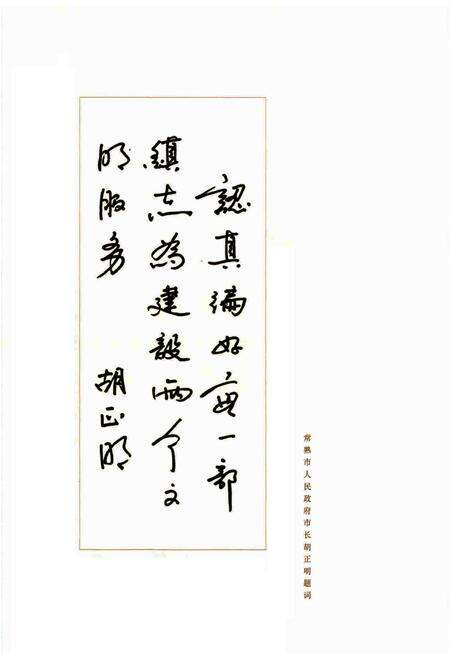 認真編好每一部
鎮志為建設两个文
明服务
胡正明
常熟市人民政府市长胡正明题词